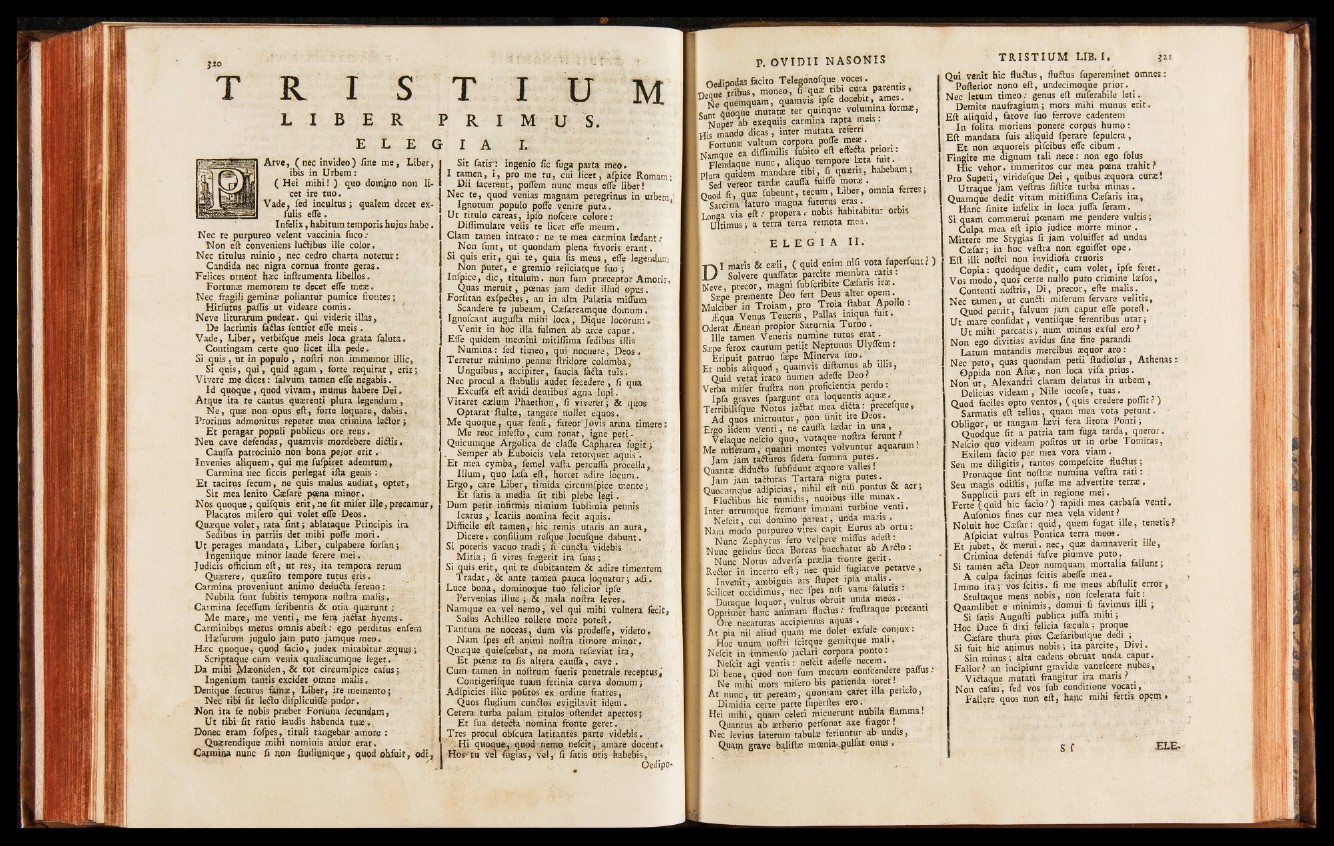 320
TRISTIUM
LIBER PRIMUS.
ELEGIA I.
PArve, (nec invideo) sine me, Liber,
ibis in Urbem:
(Hei mihi!) quo domino non li-
cet ire tuo.
Vade, sed incultus; qualem decet ex-
sulis esse.
Infelix, habitum temporis hujus habe.
Nec te purpureo velent vaccinia fuco:
Non est conveniens luctibus ille color.
Nec titulus minio, nec cedro charta notetur:
Candida nec nigra cornua fronte geras.
Felices ornent hæc instrumenta libellos.
Fortunæ memorem te decet esse meæ.
Nec fragili geminæ poliantur pumice frontes;
Hirsutus passis ut videare comis.
Neve liturarum pudeat. qui viderit illas,
De lacrimis factas sentiet esse meis.
Vade, Liber, verbisque meis loca grata saluta.
Contingam certe quo licet illa pede.
Si quis, ut in populo, nostri non immemor illic,
Si quis, qui, quid agam, forte requirat, erit;
Vivere me dices: salvum tamen esse negabis.
Id quoque, quod vivam, munus habere Dei.
Atque ita te cautus quærenti plura legendum,
Ne, quæ non opus est, forte loquare, dabis.
Protinus admonitus repetet mea crimina lector;
Et peragar populi publicus ore reus.
Neu cave defendas, quamvis mordebere dictis.
Caussa patrocinio non bona pejor erit.
Invenies aliquem, qui me suspiret ademtum,
Carmina nec siccis perlegat ista genis:
Et tacitus secum, ne quis malus audiat, optet,
Sit mea lenito Cæsare pœna minor.
Nos quoque, quisquis erit, ne sit miser ille, precamur,
Placatos misero qui volet esse Deos.
Quæque volet, rata sint; ablataque Principis ira
Sedibus in patriis det mihi posse mori.
Ut perages mandata, Liber, culpabere forsan;
Ingeniique minor laude ferere mei.
Judicis officium est, ut res, ita tempora rerum
Quærere, quæsito tempore tutus eris.
Carmina proveniunt animo deducta sereno:
Nubila sunt subitis tempora nostra malis.
Carmina secessum scribentis & otia quærunt:
Me mare, me venti, me fera jactat hyems.
Carminibus metus omnis abest: ego perditus ensem
Hæsurum jugulo jam puto jamque meo.
Hæc quoque, quod facio, judex mirabitur æquus;
Scriptaque cum venia qualiacumque leget.
Da mihi Mæoniden, & tot circumspice casus;
Ingenium tantis excidet omne malis.
Denique securus famæ, Liber, ire memento;
Nec tibi sit lecto displicuisse pudor.
Non ita se nobis præbet Fortuna secundam,
Ut tibi sit ratio laudis habenda tuæ.
Donec eram sospes, tituli tangebar amore:
Quærendique mihi nominis ardor erat.
Carmina nunc si non studiumque, quod obfuit, odi,
Sit satis: ingenio sic fuga parta meo.
I tamen, i, pro me tu, cui licet, aspice Romam:
Dii facerent, possem nunc meus esse liber!
Nec te, quod venias magnam peregrinus in urbem,
Ignotum populo posse venire puta.
Ut titulo careas, ipso noscere colore:
Dissimulare velis te licet esse meum.
Clam tamen intrato: ne te mea carmina lædant:
Non sunt, ut quondam plena favoris erant.
Si quis erit, qui te, quia sis meus, esse legendum
Non putet, e gremio rejiciatque suo;
Inspice, dic, titulum. non sum præceptor Amoris.
Quas meruit, pœnas jam dedit illud opus.
Forsitan exspectes, an in alta Palatia missum
Scandere te jubeam, Cæsareamque domum.
Ignoscant augusta mihi loca, Dique locorum.
Venit in hoc illa fulmen ab arce caput.
Esse quidem memini mitissima sedibus illis
Numina: sed timeo, qui nocuere, Deos.
Terretur minimo pennæ stridore columba,
Unguibus, accipiter, saucia facta tuis.
Nec procul a stabulis audet secedere, si qua
Excussa est avidi dentibus agna lupi.
Vitaret cælum Phaethon, si viveret; & quos
Optarat stulte, tangere nollet equos.
Me quoque, quæ sensi, fateor Jovis arma timere;
Me reor infesto, cum tonat, igne peti.
Quicumque Argolica de classe Capharea fugit;
Semper ab Euboicis vela retorquet aquis.
Et mea cymba, semel vasta percussa procella,
Illum, quo læsa est, horret adire locum.
Ergo, care Liber, timida circumspice mente;
Et satis a media sit tibi plebe legi.
Dum petit infirmis nimium sublimia pennis
Icarus, Icariis nomina fecit aquis.
Difficile est tamen, hic remis utaris an aura,
Dicere. consilium resque locusque dabunt.
Si poteris vacuo tradi; si cuncta videbis
Mitia; si vires fregerit ira suas;
Si quis erit, qui te dubitantem & adire timentem
Tradat, & ante tamen pauca loquatur; adi.
Luce bona, dominoque tuo felicior ipse
Pervenias illuc; & mala nostra leves.
Namque ea vel nemo, vel qui mihi vulnera fecit,
Solus Achilleo tollere more potest.
Tantum ne noceas, dum vis prodesse, videto.
Nam spes est animi nostra timore minor.
Quæque quiescebat, ne mota resæviat ira,
Et pœnæ tu sis altera caussa, cave.
Cum tamen in nostrum fueris penetrale receptus,
Contigerisque tuam scrinia curva domum;
Adspicies illic positos ex ordine fratres,
Quos studium cunctos evigilavit idem.
Cetera turba palam titulos ostendet apertos;
Et sua detecta nomina fronte geret.
Tres procul obscura latitantes parte videbis.
Hi quoque, quod nemo nescit, amare docent.
Hos tu vel fugias, vel, si satis oris habebis,
Oedipo-
P. OVIDII NASONIS
Oedipodas facito Telegonosque voces.
Deque tribus, moneo, si qua tibi cura parentis,
Ne quemquam, quamvis ipse docebit, ames.
Sunt quoque mutatæ ter quinque volumina formæ,
Nuper ab exequiis carmina rapta meis:
His mando dicas, inter mutata referri
Fortunæ vultum corpora posse meæ.
Namque ea dissimilis subito est effecta priori:
Flendaque nunc, aliquo tempore læta fuit.
Plura quidem mandare tibi, si quæris, habebam;
Sed vereor tardæ caussa fuisse moræ.
Quod si, quæ subeunt, tecum, Liber, omnia ferres;
Sarcina laturo magna futurus eras.
Longa via est: propera. nobis habitabitur orbis
Ultimus; a terra terra remota mea.
ELEGIA II.
DI maris & cæli, (quid enim nisi vota supersunt?)
Solvere quassatæ parcite membra ratis:
Neve, precor, magni subscribite Cæsaris iræ.
Sæpe premente Deo fert Deus alter opem.
Mulciber in Troiam, pro Troia stabat Apollo:
Æqua Venus Teucris, Pallas iniqua fuit.
Oderat Ænean propior Saturnia Turno.
Ille tamen Veneris numine tutus erat.
Sæpe ferox cautum petiit Neptunus Ulyssem:
Eripuit patruo sæpe Minerva suo.
Et nobis aliquod, quamvis distamus ab illis,
Quid vetat irato numen adesse Deo?
Verba miser frustra non proficientia perdo:
Ipsa graves spargunt ora loquentis aquæ.
Terribilisque Notus jactat mea dicta: precesque,
Ad quos mittuntur, non sinit ire Deos.
Ergo iidem venti, ne caussa lædar in una,
Velaque nescio quo, votaque nostra ferunt?
Me miserum, quanti montes volvuntur aquarum!
Jam jam tacturos sidera summa putes.
Quantæ diducto subsidunt æquore valles!
Jam jam tacturas Tartara nigra putes.
Quocumque adspicias, nihil est nisi pontus & aer;
Fluctibus hic tumidis, nubibus ille minax.
Inter utrumque fremunt immani turbine venti.
Nescit, cui domino pareat, unda maris.
Nam modo purpureo vires capit Eurus ab ortu:
Nunc Zephyrus sero vespere missus adest:
Nunc gelidus sicca Boreas bacchatur ab Arcto:
Nunc Notus adversa prælia fronte gerit.
Rector in incerto est; nec quid fugiatve petatve,
Invenit, ambiguis ars stupet ipsa malis.
Scilicet occidimus, nec spes nisi vana salutis:
Dumque loquor, vultus obruit unda meos.
Opprimet hanc animam fluctus: frustraque precanti
Ore necaturas accipiemus aquas.
At pia nil aliud quam me dolet exsule conjux:
Hoc unum nostri scitque gemitque mali.
Nescit in immenso jactari corpora ponto:
Nescit agi ventis: nescit adesse necem.
Di bene, quod non sum mecum conscendere passus:
Ne mihi mors misero bis patienda foret!
At nunc, ut peream, quoniam caret illa periclo,
Dimidia certe parte superstes ero.
Hei mihi, quam celeri micuerunt nubila flamma!
Quantus ab ætherio personat axe fragor!
Nec levius laterum tabulæ feriuntur ab undis,
Quam grave balistæ mœnia pulsat onus.
TRISTIUM LIB. I. 321
Qui venit hic fluctus, fluctus supereminet omnes:
Posterior nono est, undecimoque prior.
Nec letum timeo: genus est miserabile leti.
Demite naufragium; mors mihi munus erit.
Est aliquid, fatove suo ferrove cadentem
In solita moriens ponere corpus humo:
Est mandata suis aliquid sperare sepulcra,
Et non æquoreis piscibus esse cibum.
Fingite me dignum tali nece: non ego solus
Hic vehor. immeritos cur mea pœna trahit?
Pro Superi, viridesque Dei, quibus æquora curæ!
Utraque jam vestras sistite turba minas.
Quamque dedit vitam mitissima Cæsaris ira,
Hanc sinite infelix in loca jussa feram.
Si quam commerui pœnam me pendere vultis;
Culpa mea est ipso judice morte minor.
Mittere me Stygias si jam voluisset ad undas
Cæsar; in hoc vestra non eguisset ope.
Est illi nostri non invidiosa cruoris
Copia: quodque dedit, cum volet, ipse feret.
Vos modo, quos certe nullo puto crimine læsos,
Contenti nostris, Di, precor, este malis.
Nec tamen, ut cuncti miserum servare velitis,
Quod periit, salvum jam caput esse potest.
Ut mare considat, ventisque ferentibus utar;
Ut mihi parcatis; num minus exsul ero?
Non ego divitias avidus sine fine parandi
Latum mutandis mercibus æquor aro:
Nec peto, quas quondam petii studiosus, Athenas:
Oppida non Asiæ, non loca visa prius.
Non ut, Alexandri claram delatus in urbem,
Delicias videam, Nile jocose, tuas.
Quod faciles opto ventos, (quis credere possit?)
Sarmatis est tellus, quam mea vota petunt.
Obligor, ut tangam lævi fera litora Ponti;
Quodque sit a patria tam fuga tarda, queror.
Nescio quo videam positos ut in orbe Tomitas,
Exilem facio per mea vota viam.
Seu me diligitis, tantos compescite fluctus;
Pronaque sint nostræ numina vestra rati:
Seu magis odistis, jussæ me advertite terræ.
Supplicii pars est in regione mei.
Ferte (quid hic facio?) rapidi mea carbasa venti.
Ausonios fines cur mea vela vident?
Noluit hoc Cæsar: quid, quem fugat ille, tenetis?
Aspiciat vultus Pontica terra meos.
Et jubet, & merui. nec, quæ damnaverit ille,
Crimina defendi fasve piumve puto.
Si tamen acta Deos numquam mortalia fallunt;
A culpa facinus scitis abesse mea.
Immo ita; vos scitis. si me meus abstulit error,
Stultaque mens nobis, non scelerata fuit:
Quamlibet e minimis, domui si favimus illi;
Si satis Augusti publica jussa mihi;
Hoc Duce si dixi felicia sæcula; proque
Cæsare thura pius Cæsaribusque dedi;
Si fuit hic animus nobis; ita parcite, Divi.
Sin minus; alta cadens obruat unda caput.
Fallor? an incipiunt gravidæ vanescere nubes,
Victaque mutati frangitur ira maris?
Non casus, sed vos sub conditione vocati,
Fallere quos non est, hanc mihi fertis opem.
S f
ELE-